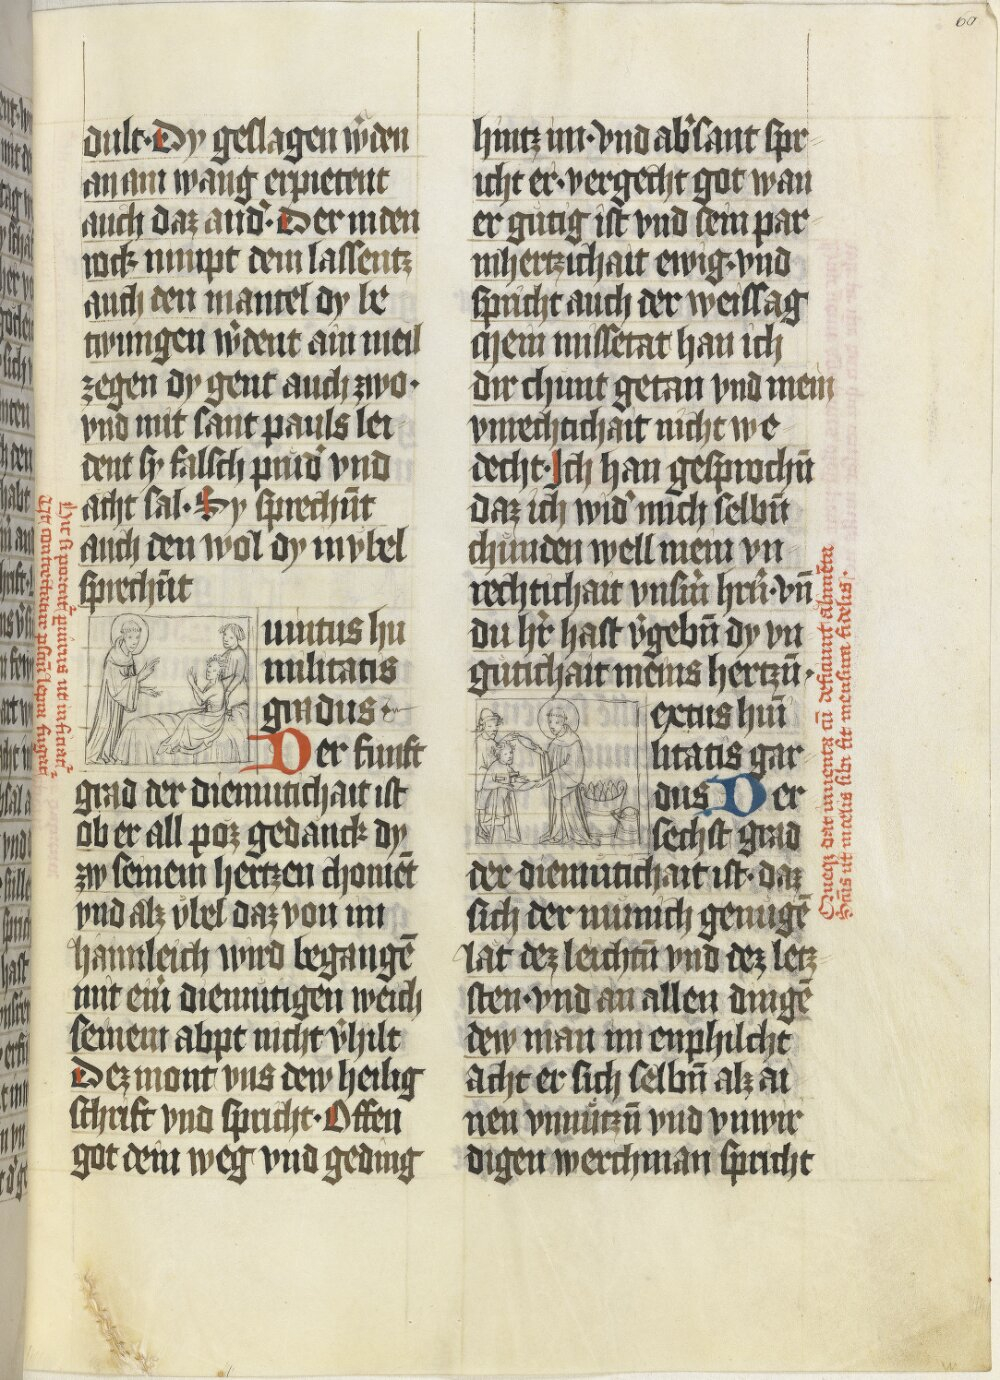 60
dult· Dy geslagen wͤden
an aim wang erpietent
auch daz and͛· Der in den
rock nimpt dem lassentz
auch den mantel dy be
twungen wͤdent ain meil
zegen dy gent auch zwo·
vnd mit sant pauls lei
dent sy falsch prud͛ vnd
acht sal· Sy sprechn̄t
auch den wol dy in vbel
sprechn̄t
uintus hu
militatis
gradus·
Der funft
grad der diemutichait ist
ob er all poz gedanck dy
zw seinem hertzen chomēt
vnd alz vbel daz von im
haimleich wird begangē
mit ein͛ diemutigen weich
seinem abpt nicht v͛hilt
Dez mont vns dew heilig
schrift vnd spricht· Offen
got dein weg vnd geding
hintz im· vnd ab͛ sant spr
icht er· vergecht got wan
er gutig ist vnd sein par
mhertzichait ewig· vnd
spricht auch der weissag
mein missetat han ich
dir chunt getan vnd mein
vnrechtichait nicht we
decht· Ich han gesprochn̄
daz ich wid͛ mich selbn̄
chunden well mein vn
rechtichait vnsm̄ hrn̄· vn̄
du hr͛ hast v͛gebn̄ dy vn
gutichait meins hertzn̄·
extus hūi
litatis gar
dus Der
sechst grad
der diemutichait ist· daz
sich der munich genugē
lat dez leichtn̄ vnd dez letz
sten· vnd an allen dingē
dew man im enphilcht
acht er sich selbn̄ alz ai
nen vnnutzn̄ vnd vnwir
digen werchman spricht